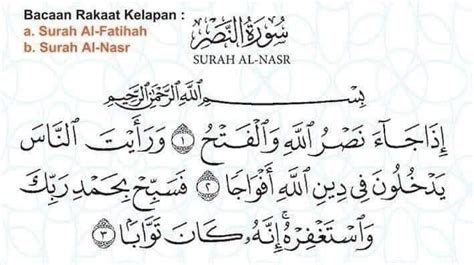 Bacaan Rakaat Kelapan :
a. Surah Al-Fatihah
b. Surah Al-Nasr
سُورَةُ النَّصْرِ
SURAH AL-NASR
بِسْمِ اللَّهِ الرَّحْمَٰنِ الرَّحِيمِ
إِذَا جَآءَ نَصْرُ اللَّهِ وَالْفَتْحُ ١ وَرَأَيْتَ النَّاسَ
يَدْخُلُونَ فِي دِينِ اللَّهِ أَفْوَاجًا ٢ فَسَبِّحْ بِحَمْدِ رَبِّكَ
وَاسْتَغْفِرْهُ ۚ إِنَّهُ كَانَ تَوَّابًا ٣